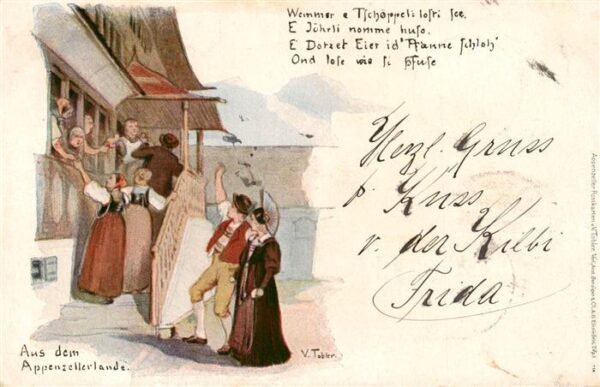 Wemmer e Tschöppeli losti see.
E Jöhrli nomme huso.
E Dorzet Eier id' Pfanne schloh'
Ond lose wie si pfuse
Herzl. Gruss
& Kuss
v. der Kilbi
Frida
Aus dem
Appenzellerlande.
V. Tobler.
Appenzeller Postkarten v. V. Tobler.